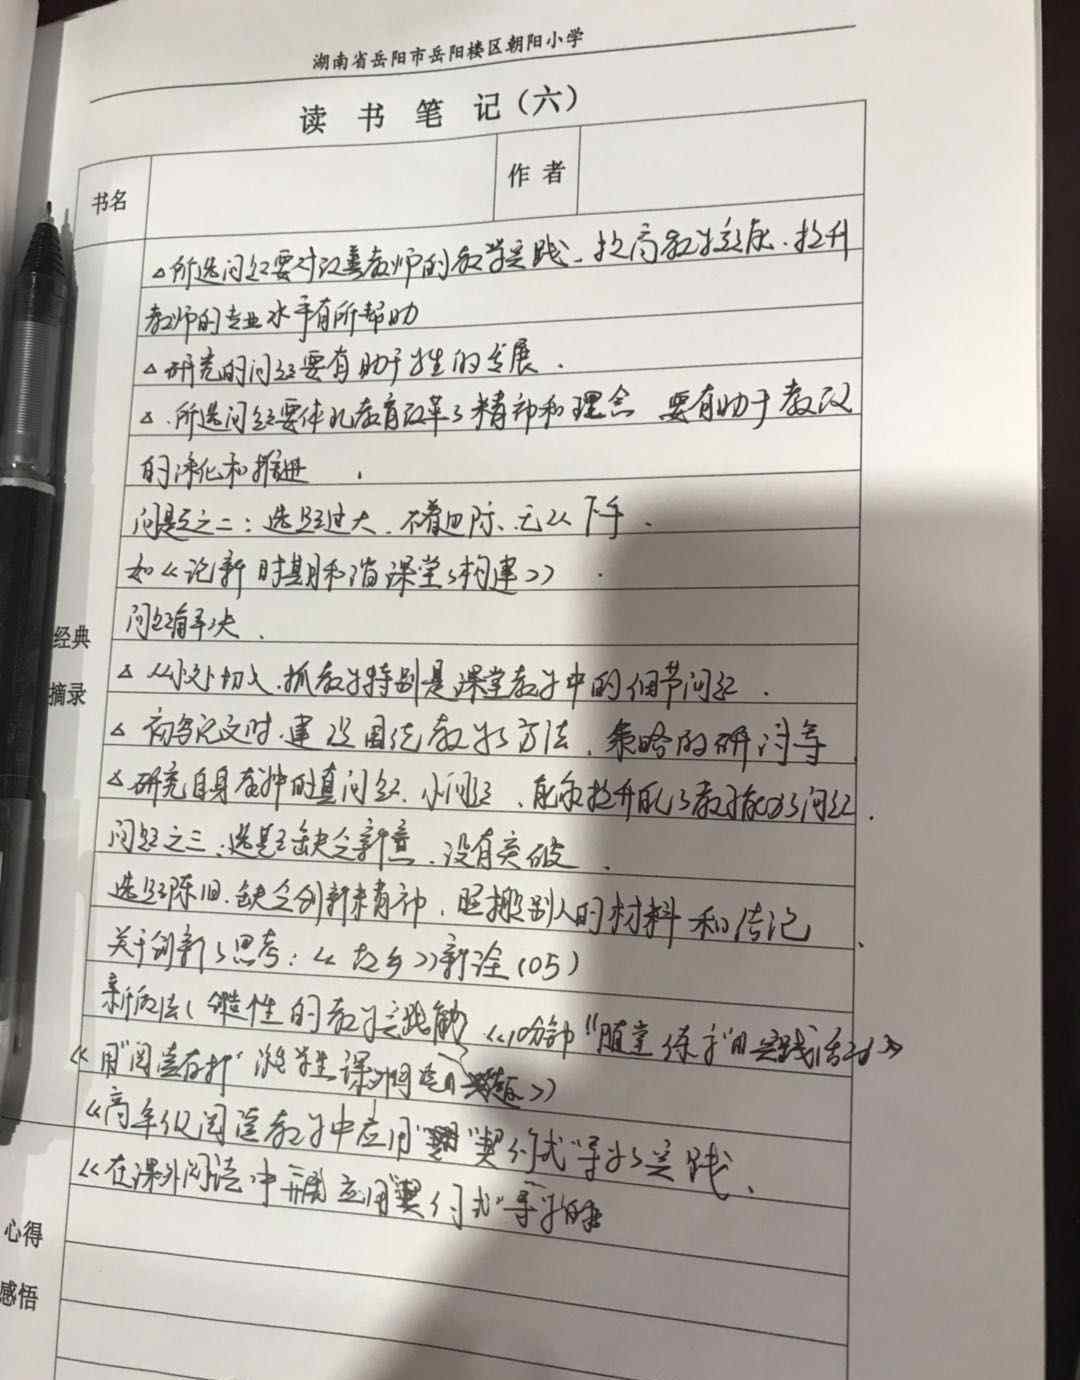 湖南省岳阳市岳阳楼区朝阳小学
读书笔记(六)
书名
作者
△所选问题要对改善教师的教学实践、提高教学效能、提升
教师的专业水平有所帮助
△研究的问题要有助于学生的发展.
△.所选问题要体现教育改革的精神和理念 要有助于教改
的深化和推进.
问题之二:选题过大.不着边际.无从下手.
如《论新时期和谐课堂的构建》
问题解决.
△从小处切入.抓教学特别是课堂教学中的细节问题.
△ 初写论文时.建议围绕教学的方法、策略的研讨等
△研究自身教学中的真问题、小问题、能够提升自己的教学能力的问题.
问题之三.选题缺乏新意.没有突破.
选题陈旧.缺乏创新精神.照搬别人的材料和结论.
关于创新的思考:《故乡》新诠(05)
性的教学实践 《10分钟"随堂练字"的实践活动》
《用"阅读存折" 学生课外阅读
《高年级阅读教学中应用"契约式"导学的实践.
《在课外阅读中 应用"契约式"导学
经典
摘录
心得
感悟